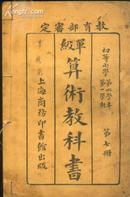 教育部審定
初等小學
第四學年
第一學期
第七冊
單級
算術教科書
上海商務印書館出版